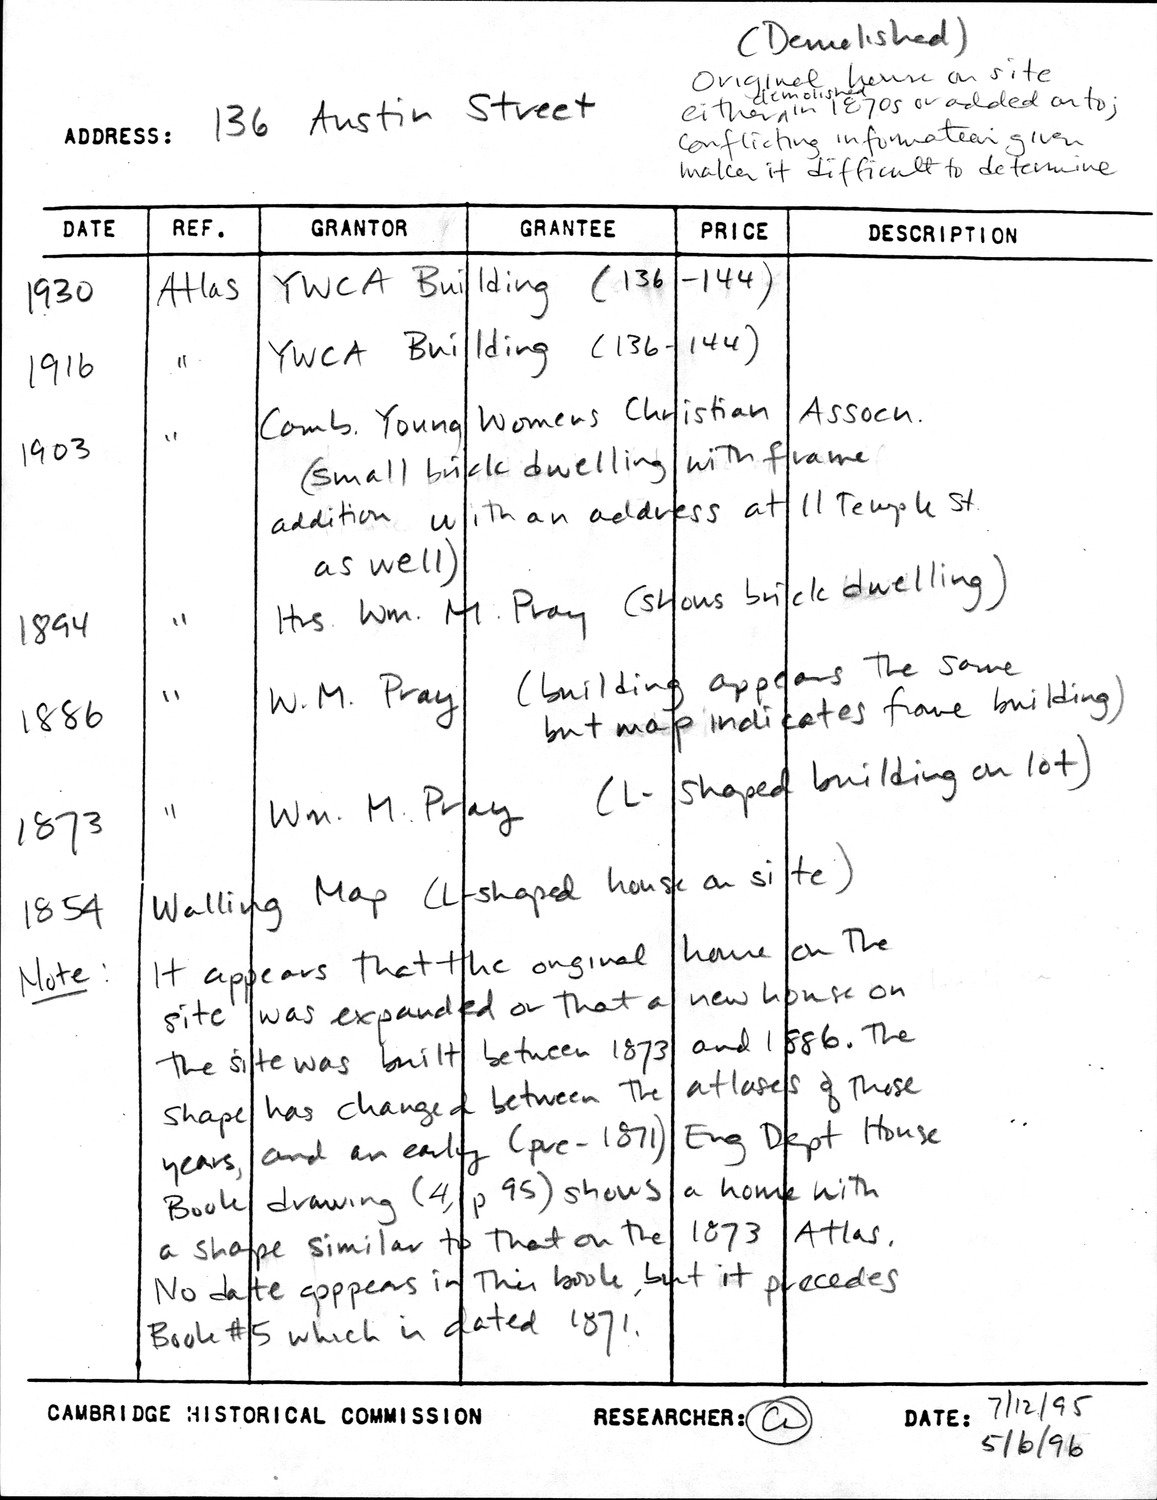 (Demolished)
Original house on site
either demolished in 1870s or added onto;
conflicting information given
makes it difficult to determine
ADDRESS: 136 Austin Street
DATE REF. GRANTOR GRANTEE PRICE DESCRIPTION
1930 Atlas YWCA Building (136-144)
1916 " YWCA Building (136-144)
1903 " Camb. Young Womens Christian Assocn.
(small brick dwelling with frame
addition with an address at 11 Temple St.
as well)
1894 " Hrs. Wm. M. Pray (shows brick dwelling)
1886 " W.M. Pray (building appears the same
but map indicates frame building)
1873 " Wm. M. Pray (L-shaped building on lot)
1854 Walling Map (L-shaped house on site)
Note: It appears that the original home on the
site was expanded or that a new house on
the site was built between 1873 and 1886. The
shape has changed between the atlases of those
years, and an early (pre-1871) Eng Dept House
Book drawing (4, p 95) shows a home with
a shape similar to that on the 1873 Atlas.
No date appears in this book, but it precedes
Book #5 which is dated 1871.
CAMBRIDGE HISTORICAL COMMISSION RESEARCHER: DATE: 7/12/95
5/6/96